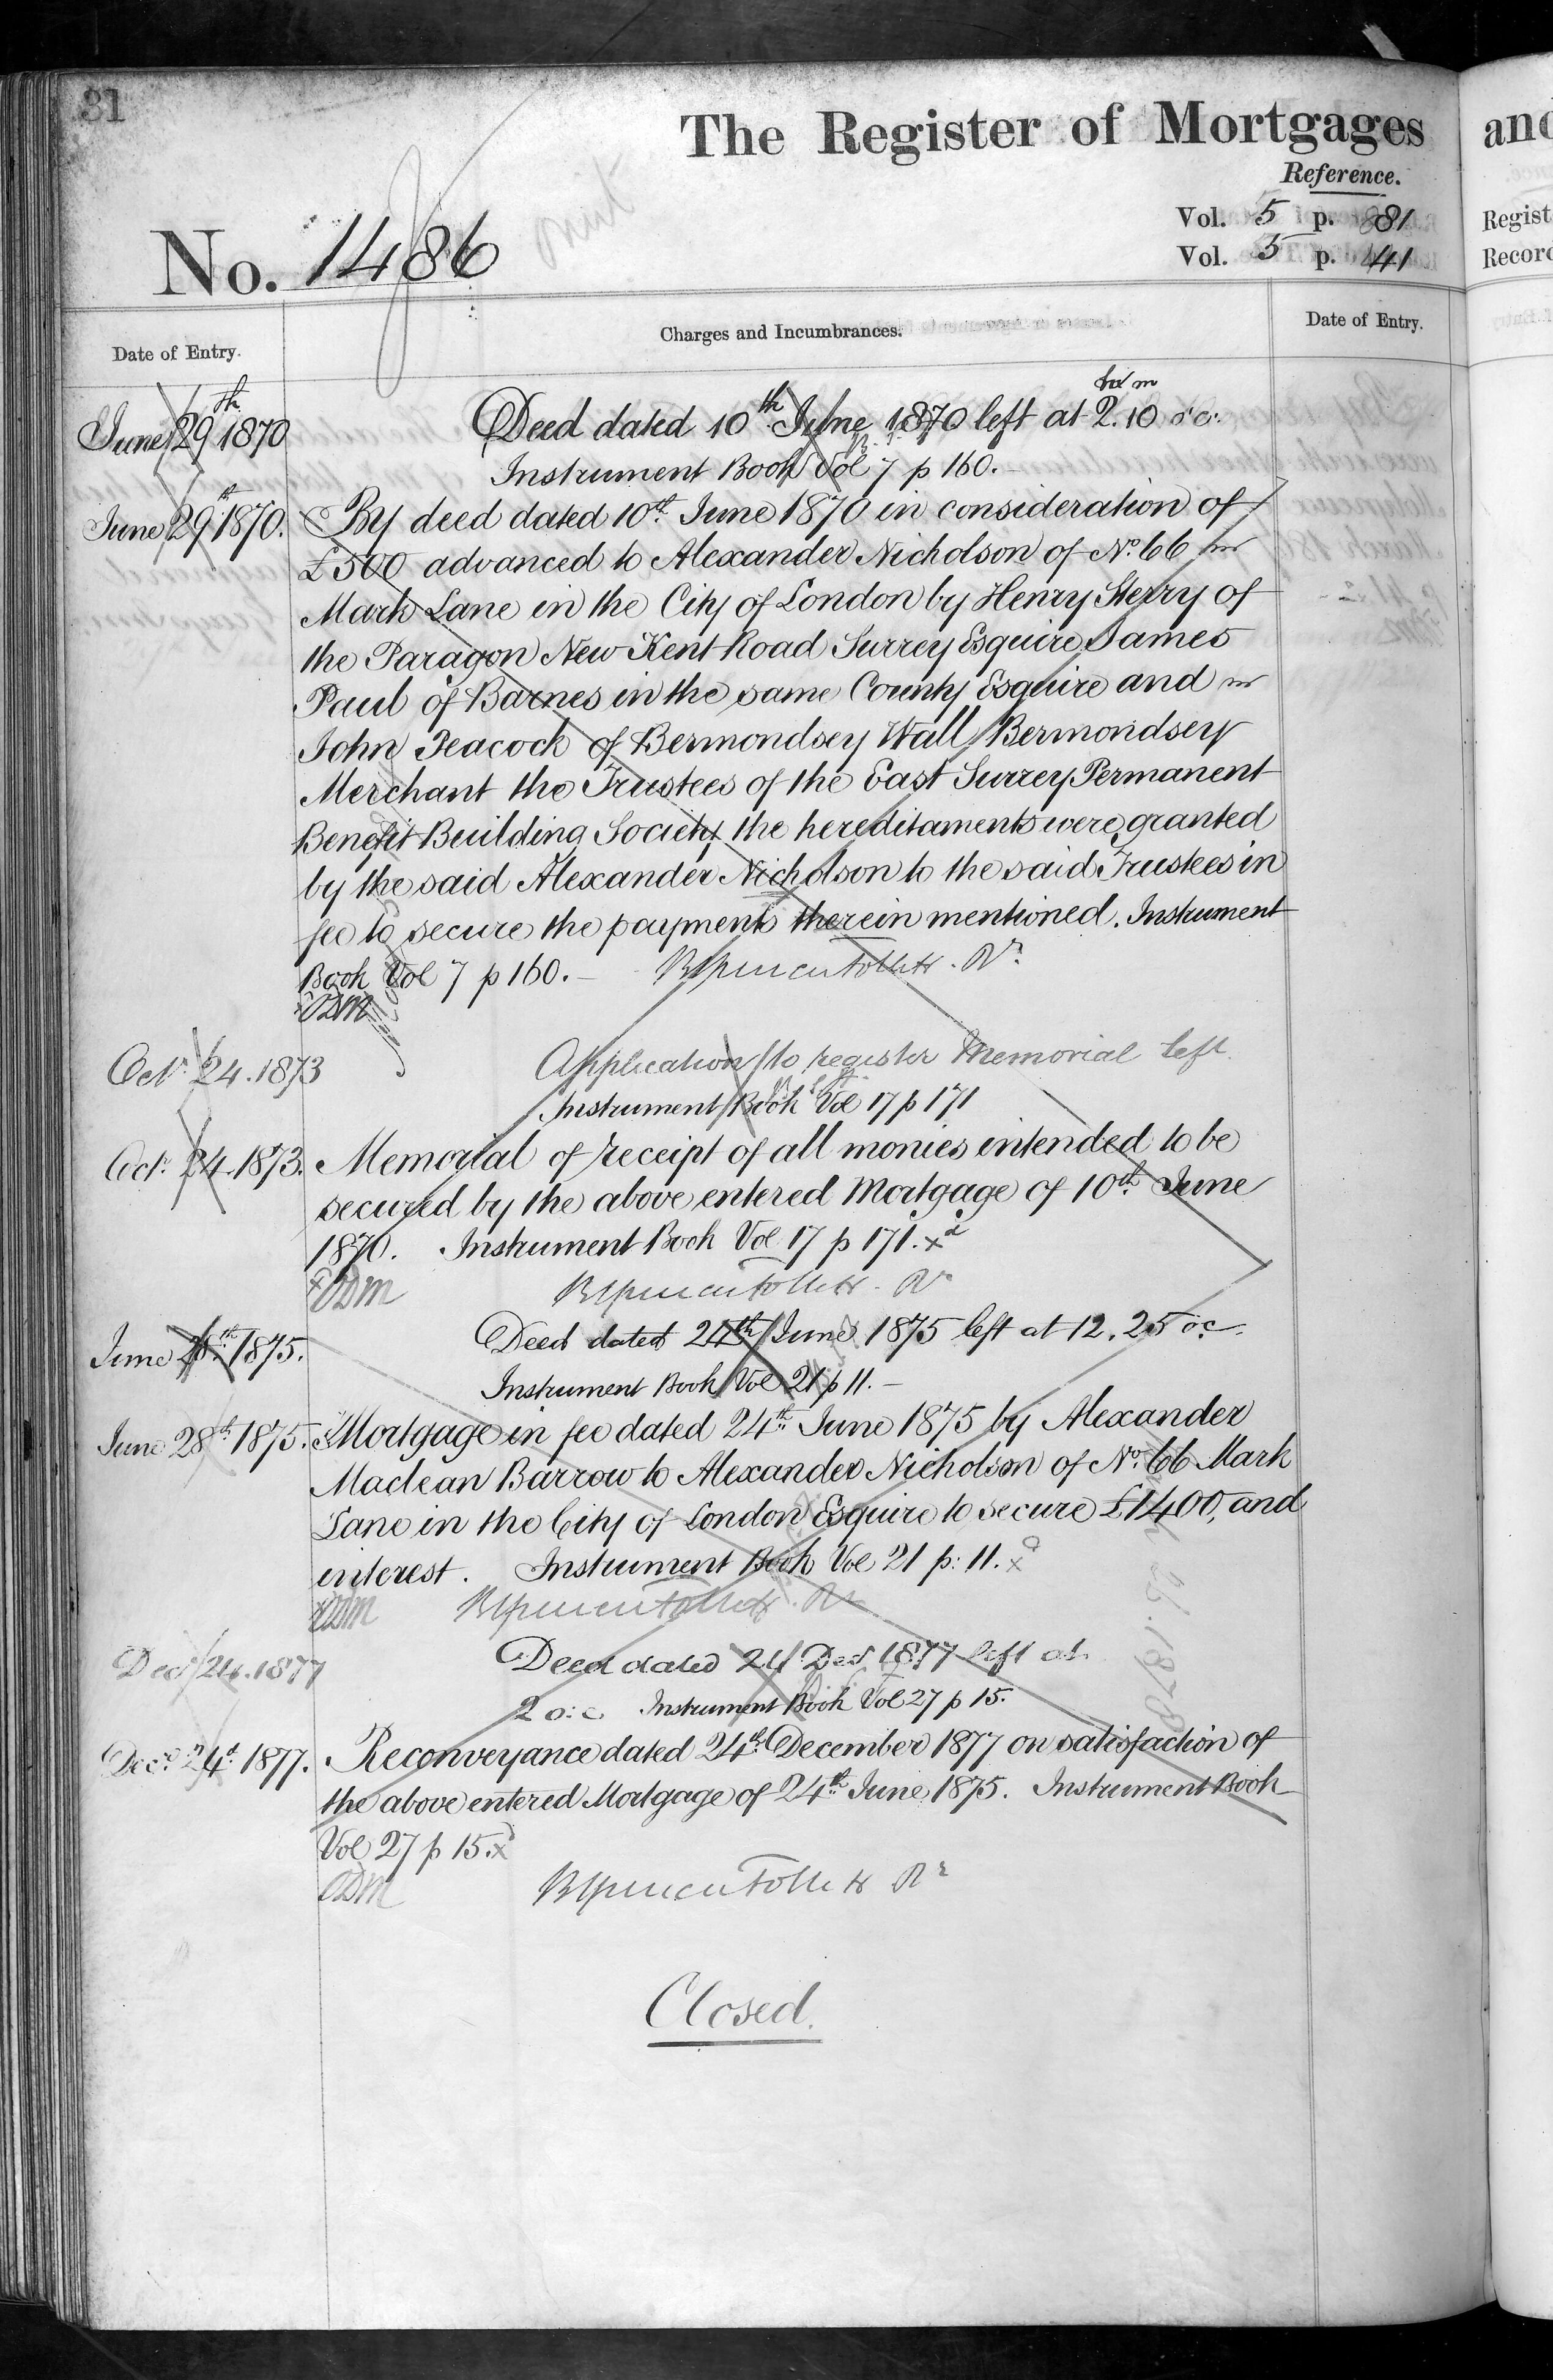 81
The Register of Mortgages
and
Reference.
Vol. 5 p. 81
Regist
No. 1486
Vol. 5 p. 41
Record
Date of Entry.
Charges and Incumbrances.
Date of Entry.
June 29th 1870
Deed dated 10th June 1870 left at 2.10 oc.
Instrument Book Vol 7 p 160.-
June 29th 1870.
By deed dated 10th June 1870 in consideration of
£500 advanced to Alexander Nicholson of No. 66
Mark Lane in the City of London by Henry Sterry of
the Paragon New Kent Road Surrey Esquire James
Paul of Barnes in the same County Esquire and
John Peacock of Bermondsey Wall Bermondsey
Merchant the Trustees of the East Surrey Permanent
Benefit Building Society the hereditaments were granted
by the said Alexander Nicholson to the said Trustees in
fee to secure the payments therein mentioned. Instrument
Book Vol 7 p 160.-
Octr. 24. 1873
Application to register Memorial left
Instrument Book Vol 17 p 171
Octr. 24. 1873.
Memorial of receipt of all monies intended to be
secured by the above entered Mortgage of 10th June
1870. Instrument Book Vol 17 p 171.
June 28th 1875.
Deed dated 24th June 1875 left at 12.25 oc.
Instrument Book Vol 21 p 11.-
June 28th 1875.
Mortgage in fee dated 24th June 1875 by Alexander
Maclean Barrow to Alexander Nicholson of No. 66 Mark
Lane in the City of London Esquire to secure £1400, and
interest. Instrument Book Vol 21 p: 11.
Decr 24. 1877
Deed dated 24 Decr 1877 left at
2 o:c Instrument Book Vol 27 p 15.
Decr. 24th 1877.
Reconveyance dated 24th December 1877 on satisfaction of
the above entered Mortgage of 24th June 1875. Instrument Book
Vol 27 p 15.
Closed.